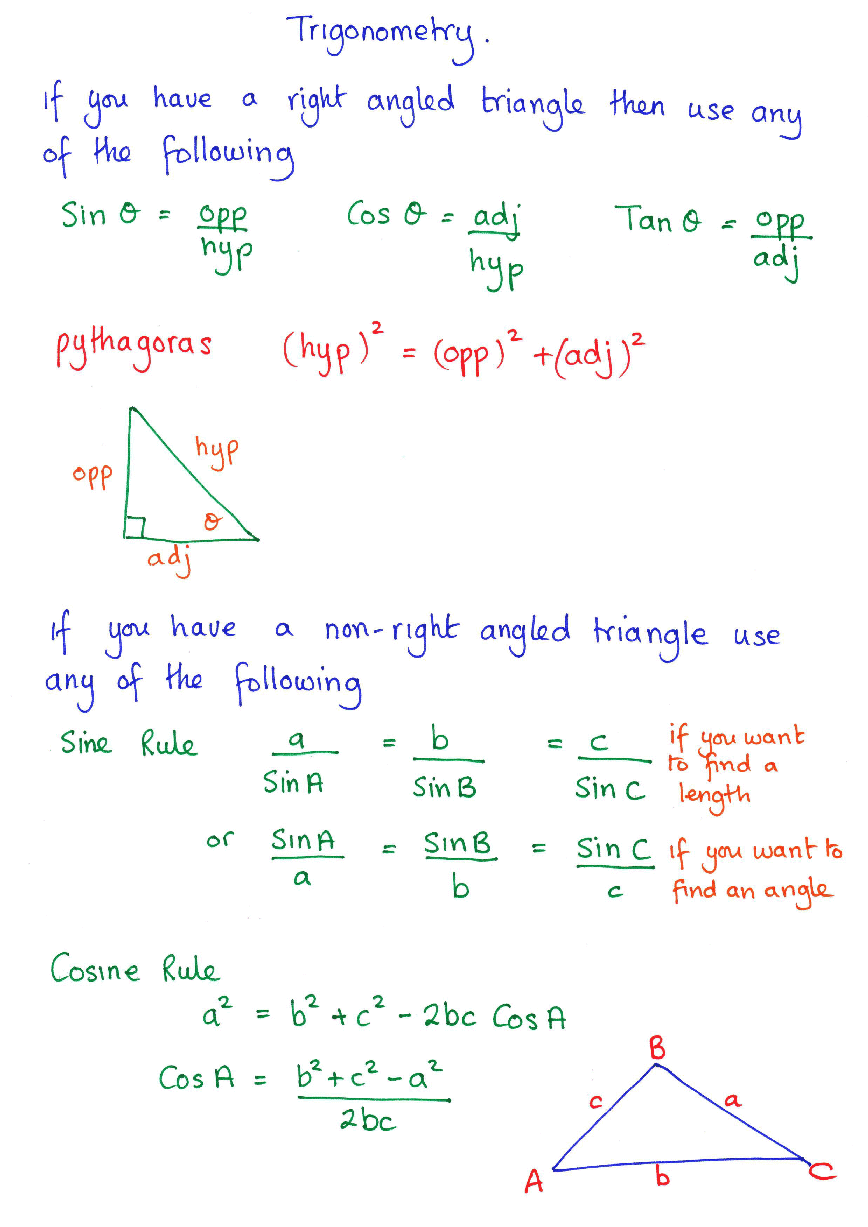 Trigonometry.
If you have a right angled triangle then use any
of the following
Sin θ = opp/hyp Cos θ = adj/hyp Tan θ = opp/adj
pythagoras (hyp)² = (opp)² + (adj)²
hyp
opp
θ
adj
If you have a non-right angled triangle use
any of the following
Sine Rule a/Sin A = b/Sin B = c/Sin C if you want
to find a
length
or Sin A/a = Sin B/b = Sin C/c if you want to
find an angle
Cosine Rule
a² = b² + c² - 2bc Cos A
Cos A = b² + c² - a²/2bc
B
c a
A b C